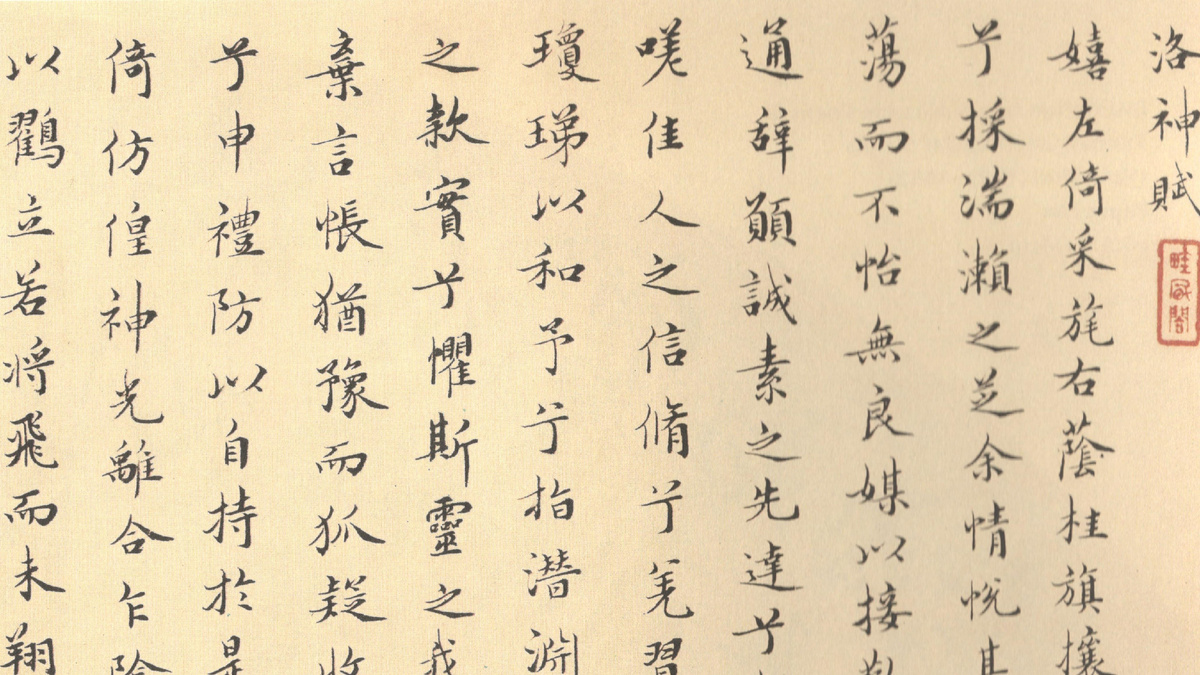 洛神賦
嬉左倚采旄右蔭桂旗攘
兮採湍瀨之芝余情悅其
蕩而不怡無良媒以接
通辭願誠素之先達兮
嗟佳人之信脩兮羌習
瓊珶以和予兮指潛淵
之款實兮懼斯靈之我
棄言悵猶豫而狐疑收
兮申禮防以自持於是
倚仿偟神光離合乍陰
以鸛立若将飛而未翔